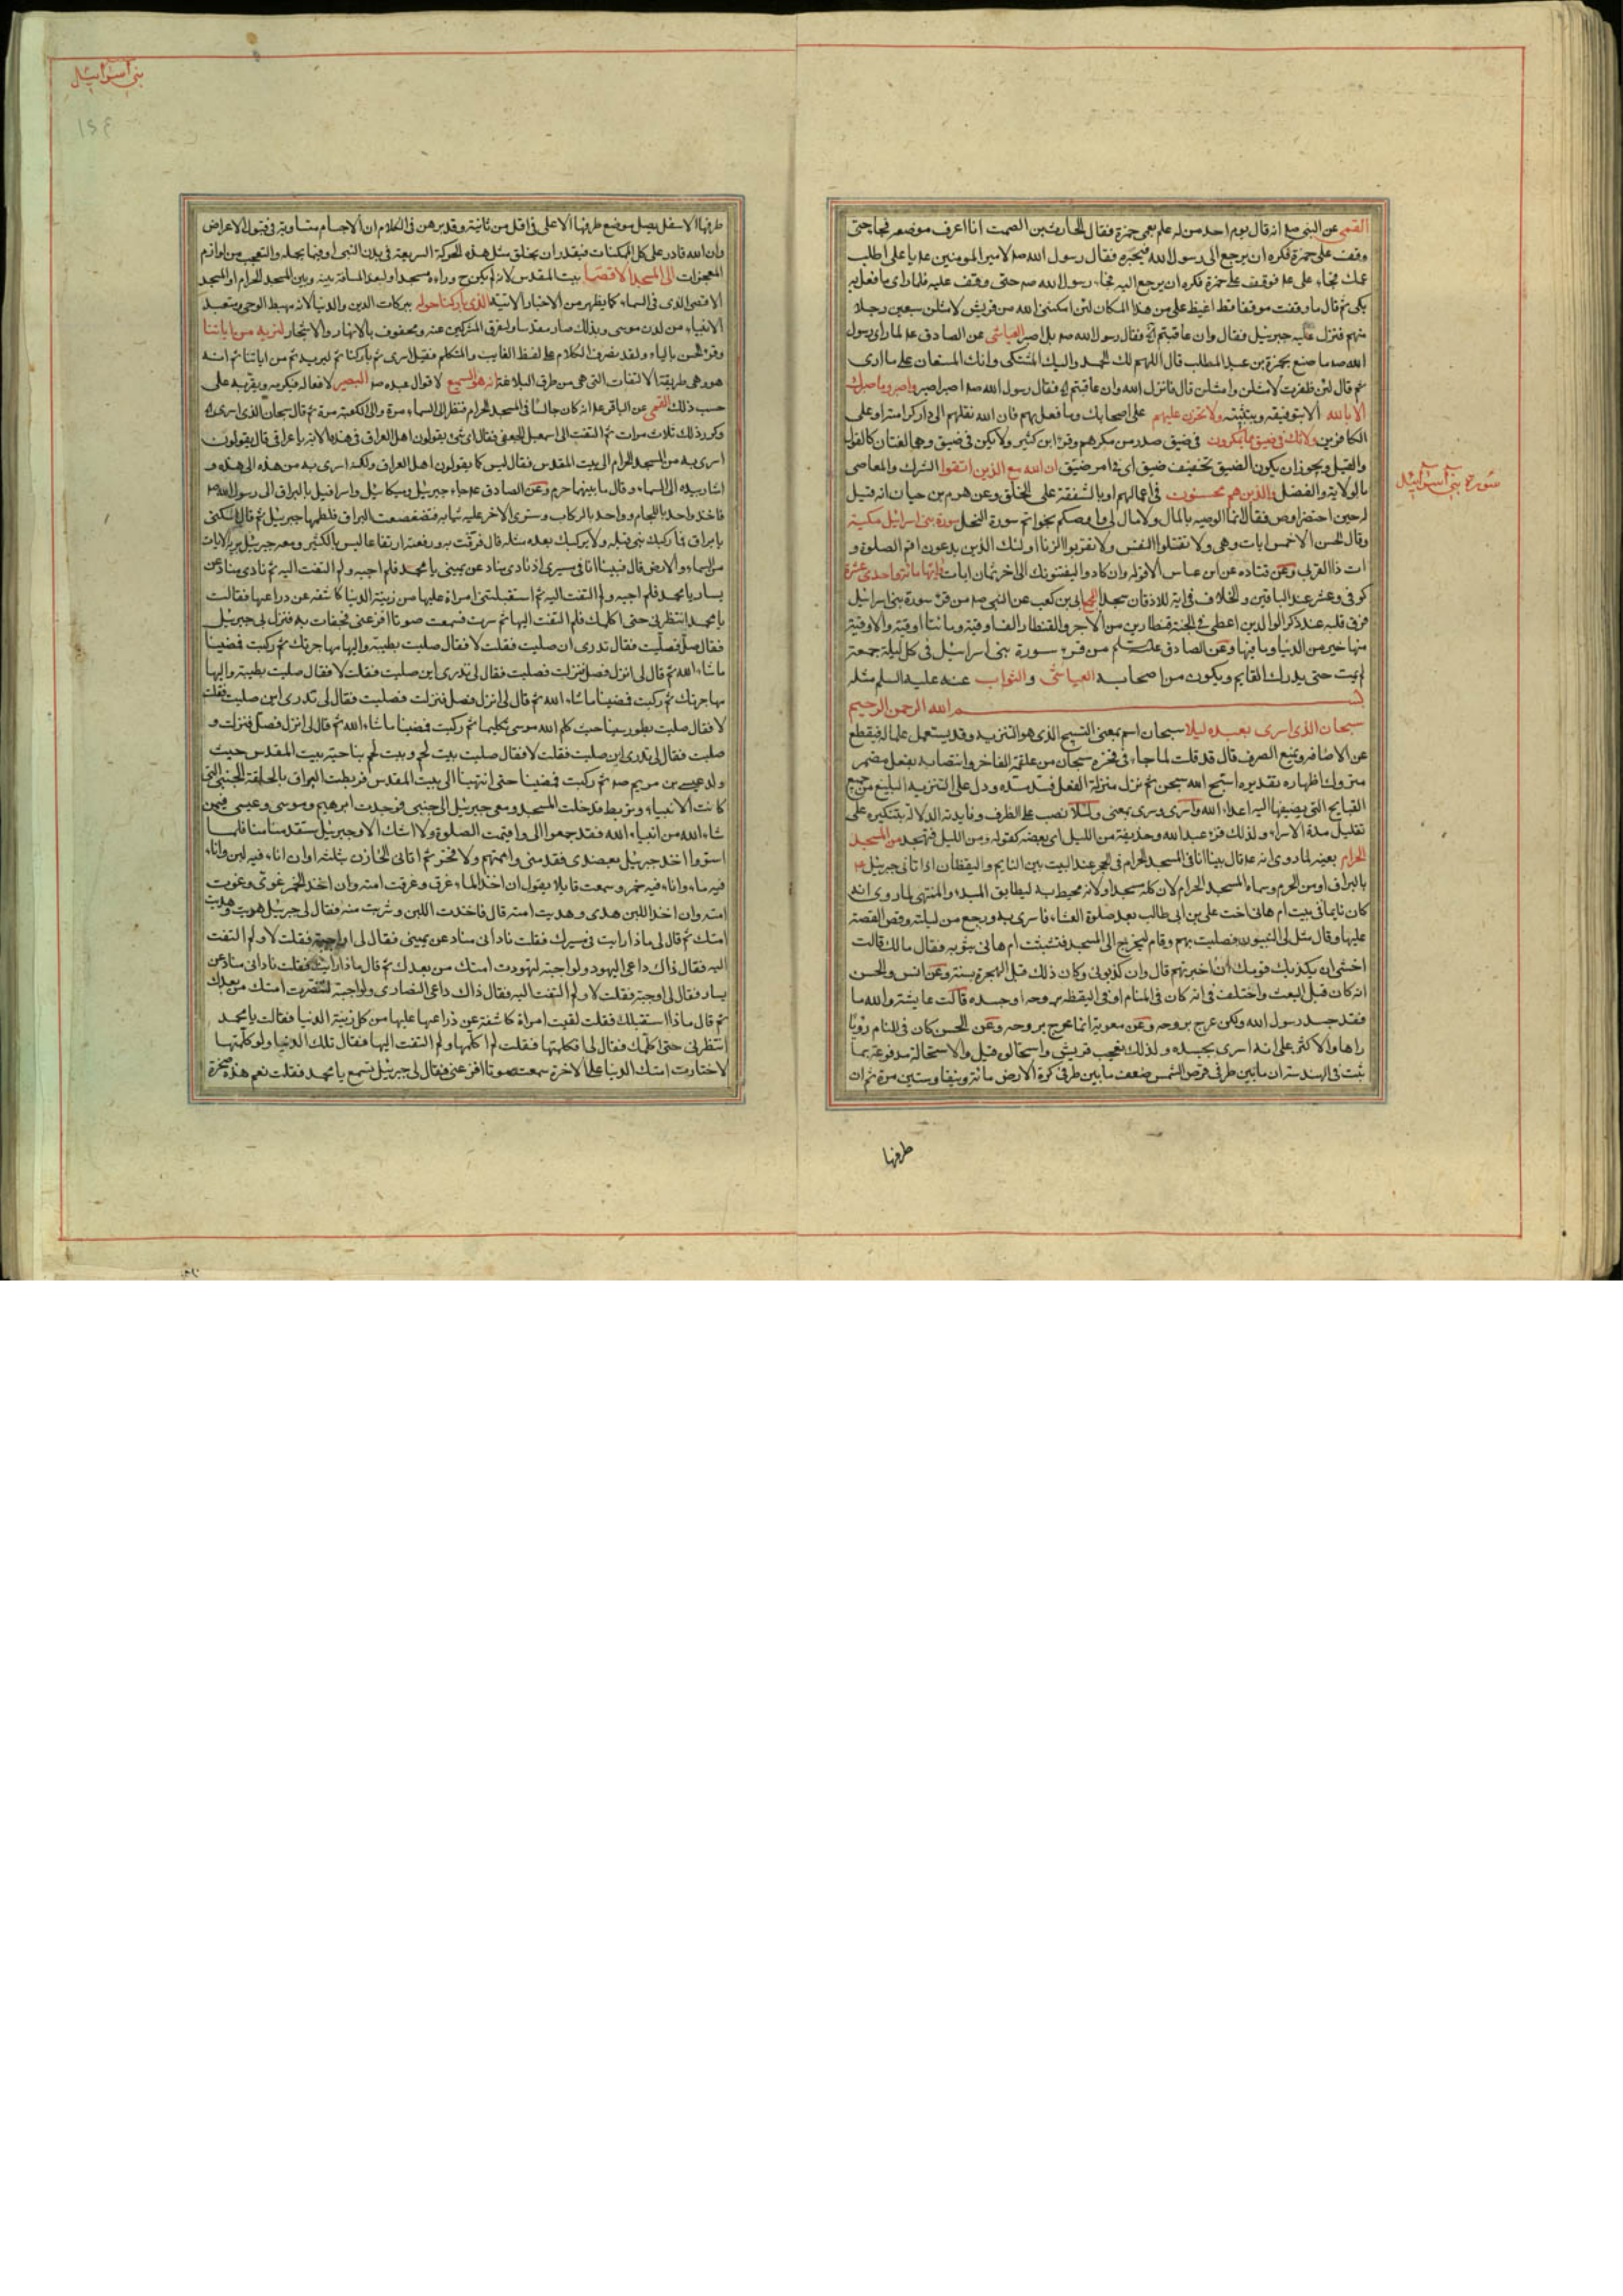 القمى عن النبى صلع انه قال يوم احد من له علم بعمى حمزة فقال الحارث بن الصمت انا اعرف موضعه فجا حتى
وقف على حمزة فكره ان يرجع الى رسول الله فيخبره فقال رسول الله صلا لامير المومنين علا يا على اطلب
عمك فجاء على علا فوقف على حمزة فكره ان يرجع اليه فجاء رسول الله صلا حتى وقف عليه فلما راى ما فعل به
بكى ثم قال ما وقفت موقفا قط اغيظ على من هذا المكان لئن امكننى الله من قريش لامثلن سبعين رجلا
منهم فنزل عليه جبرئيل فقال وان عاقبتم الآية فقال رسول الله صلا بل اصبر العياشى عن الصادق علا لما راى رسول
الله صلا ما صنع بحمزة بن عبد المطلب قال اللهم لك الحمد واليك المشتكى وانت المستعان على ما ارى
ثم قال لئن ظفرت لامثلن وامثلن قال فانزل الله وان عاقبتم الآية فقال رسول الله صلا اصبر اصبر واصبر وما صبرك
الا بالله الا بتوفيقه وبتثبيته ولا تحزن عليهم على اصحابك وما فعل بهم فان الله نقلهم الى دار كرامته او على
الكافرين ولا تك فى ضيق مما يمكرون فى ضيق صدر من مكرهم وقرء ابن كثير ولا يكن فى ضيق وهما لغتان كالقول
والقيل ويجوز ان يكون الضيق تخفيف ضيق اى فى امر ضيق ان الله مع الذين اتقوا الشرك والمعاصى
بالولاية والفضل والذين هم محسنون فى اعمالهم او بالشفقة على الخلق وعن هرم بن حيان انه قيل
له حين احتضر اوص فقال انما الوصية بالمال ولا مال لى واوصيكم بخواتم سورة النحل سورة بنى اسرائيل مكية
وقال الحسن الا خمس ايات وهى ولا تقتلوا النفس ولا تقربوا الزنا اولئك الذين يدعون اقم الصلوة و
ات ذا القربى وعن قتاده عن ابن عباس الا قوله وان كادوا ليفتنونك الى اخر ثمان ايات وايها مائة واحدى عشرة
كوفى وعشر عند الباقين والخلاف فى اية للاذقان سجدا ابى بن كعب عن النبى صلا من قرء سورة بنى اسرائيل
فرق قلبه عند ذكر الوالدين اعطى فى الجنة قنطارين من الاجر والقنطار الف اوقية ومائتا اوقية والاوقية
منها خير من الدنيا وما فيها وعن الصادق عليه السلم من قرء سورة بنى اسرائيل فى كل ليلة جمعة
لم يمت حتى يدرك القايم ويكون من اصحابه العياشى والثواب عنه عليه السلم مثله
بسم الله الرحمن الرحيم
سبحان الذى اسرى بعبده ليلا سبحان اسم بمعنى التسبيح الذى هو التنزيه وقد يستعمل علما له فيقطع
عن الاضافه ويمنع الصرف قال قد قلت لما جاءنى فخره سبحان من علقمة الفاخر وانتصابه بفعل مضمر
متروك اظهاره تقديره اسبح الله سبحن ثم نزل منزلة الفعل فسد مسده ودل على التنزيه البليغ من جميع
القبايح التى يضيفها اليه اعداء الله واسرى وسرى بمعنى وليلا نصب على الظرف وفايدته الدلالة بتنكيره على
تقليل مدة الاسراء ولذلك قرء عبد الله وحذيفة من الليل اى بعضه كقوله ومن الليل فتهجد من المسجد
الحرام بعينه لما روى انه علا قال بينا انا فى المسجد الحرام فى الحجر عند البيت بين النايم واليقظان اذ اتانى جبرئيل علا
بالبراق او من الحرم وسماه المسجد الحرام لان كله مسجد او لانه محيط به ليطابق المبدء والمنتهى لما روى انه
كان نايما فى بيت ام هانى اخت على بن ابى طالب بعد صلوة العشاء فاسرى به ورجع من ليلته وقص القصة
عليها وقال مثل لى النبيون فصليت بهم وقام ليخرج الى المسجد فتشبثت ام هانى بثوبه فقال مالك قالت
اخشى ان يكذبك قومك ان اخبرتهم قال وان كذبونى وكان ذلك قبل الهجرة بسنة وعن انس والحسن
انه كان قبل البعث واختلف فى انه كان فى المنام او فى اليقظه بروحه او جسده قالت عايشة والله ما
فقد جسد رسول الله ولكن عرج بروحه وعن معوية انما عرج بروحه وعن الحسن كان فى المنام رؤيا
راها والاكثر على انه اسرى بجسده ولذلك تعجب قريش واستحالوه قيل والاستحالة مدفوعة بما
ثبت فى الهندسة ان ما بين طرفى قرص الشمس ضعف ما بين طرفى كرة الارض مائة ونيفا وستين مرة ثم ان
طرفها
سورة بنى اسرائيل
بنى اسرائيل
طرفها الاسفل يصل موضع طرفها الاعلى فى اقل من ثانية وقد برهن فى الكلام ان الاجسام متساوية فى قبول الاعراض
وان الله قادر على كل الممكنات فيقدر ان يخلق مثل هذه الحركة السريعة فى بدن النبى او فيما يحمله والتعجب من لوازم
المعجزات الى المسجد الاقصا بيت المقدس لانه لم يكن ح وراءه مسجد او لبعد المسافة بينه وبين المسجد الحرام او المسجد
الاقصى الذى فى السماء كما يظهر من الاخبار الاتية الذى باركنا حوله ببركات الدين والدنيا لانه مهبط الوحى ومتعبد
الانبياء من لدن موسى وبذلك صار مقدسا وليفرق المشركين عنه ومحفوف بالانهار والاشجار لنريه من اياتنا
وقرء الحسن بالياء ولقد تصرف الكلام على لفظ الغايب والمتكلم فقيل اسرى ثم باركنا ثم ليريه ثم من اياتنا ثم انه
هو وهى طريقة الالتفات التى هى من طرق البلاغة انه هو السميع لاقوال عبده صلا البصير لافعاله فيكرمه ويقربه على
حسب ذلك القمى عن الباقر علا انه كان جالسا فى المسجد الحرام فنظر الى السماء مرة والى الكعبة مرة ثم قال سبحان الذى اسرى الآية
وكرر ذلك ثلاث مرات ثم التفت الى اسمعيل الجعفى فقال اى شئ يقولون اهل العراق فى هذه الاية يا عراقى قال يقولون
اسرى به من المسجد الحرام الى بيت المقدس فقال ليس كما يقولون اهل العراق ولكنه اسرى به من هذه الى هذه و
اشار بيده الى السماء وقال ما بينهما حرم وعن الصادق علا جاء جبرئيل وميكائيل واسرافيل بالبراق الى رسول الله صلا
فاخذ واحد باللجام وواحد بالركاب وسوى الاخر عليه ثيابه فتضعضعت البراق فلطمها جبرئيل ثم قال اسكنى
يا براق فما ركبك نبى قبله ولا يركبك بعده مثله قال فرقت به ورفعته ارتفاعا ليس بالكثير ومعه جبرئيل يريه الايات
من السماء والارض قال فبينا انا فى مسيرى اذ نادى مناد عن يمينى يا محمد فلم اجبه ولم التفت اليه ثم نادى مناد عن
يسار يا محمد فلم اجبه ولم التفت اليه ثم استقبلتنى امراة عليها من زينة الدنيا كاشفه عن ذراعيها فقالت
يا محمد انتظرنى حتى اكلمك فلم التفت اليها ثم سرت فسمعت صوتا افزعنى فجفات به فنزل بى جبرئيل
فقال صل فصليت فقال تدرى اين صليت فقلت لا فقال صليت بطيبة واليها مهاجرتك ثم ركبت فمضينا
ماشاء الله ثم قال لى انزل فصل فنزلت فصليت فقال لى تدرى اين صليت فقلت لا فقال صليت بطيبة واليها
مهاجرتك ثم ركبت فمضينا ماشاء الله ثم قال لى انزل فصل فنزلت فصليت فقال لى تدرى اين صليت فقلت
لا فقال صليت بطور سينا حيث كلم الله موسى تكليما ثم ركبت فمضينا ماشاء الله ثم قال لى انزل فصل فنزلت و
صليت فقال لى تدرى اين صليت فقلت لا فقال صليت بيت لحم وبيت لحم بناحية بيت المقدس حيث
ولد عيسى بن مريم صلا ثم ركبت فمضينا حتى انتهينا الى بيت المقدس فربطت البراق بالحلقة التى
كانت الانبياء تربط فدخلت المسجد ومعى جبرئيل الى جنبى فوجدت ابرهيم وموسى وعيسى فيمن
شاء الله من انبياء الله فقد جمعوا الى واقيمت الصلوة ولا اشك الا وجبرئيل سيتقدمنا فلما
استووا اخذ جبرئيل بعضدى فقدمنى واممتهم ولا فخر ثم اتانى الخازن بثلثه اوان اناء فيه لبن واناء
فيه ماء واناء فيه خمر وسمعت قايلا يقول ان اخذ الماء غرق وغرقت امته وان اخذ الخمر غوى وغويت
امته وان اخذ اللبن هدى وهديت امته قال فاخذت اللبن وشربت منه فقال لى جبرئيل هديت وهديت
امتك ثم قال لى ماذا رايت فى مسيرك فقلت نادانى مناد عن يمينى فقال لى اواجبته فقلت لا ولم التفت
اليه فقال ذاك داعى اليهود ولو اجبته لتهودت امتك من بعدك ثم قال ماذا رايت فقلت نادانى مناد عن
يسار فقال لى اوجبته فقلت لا ولم التفت اليه فقال ذاك داعى النصارى ولو اجبته لتنصرت امتك من بعدك
ثم قال ماذا استقبلك فقلت لقيت امراة كاشفة عن ذراعيها عليها من كل زينة الدنيا فقالت يا محمد
انتظرنى حتى اكلمك فقال لى افكلمتها فقلت لم اكلمها ولم التفت اليها فقال تلك الدنيا ولو كلمتها
لاختارت امتك الدنيا على الاخرة ثم سمعت صوتا افزعنى فقال لى جبرئيل تسمع يا محمد فقلت نعم هذه صخرة